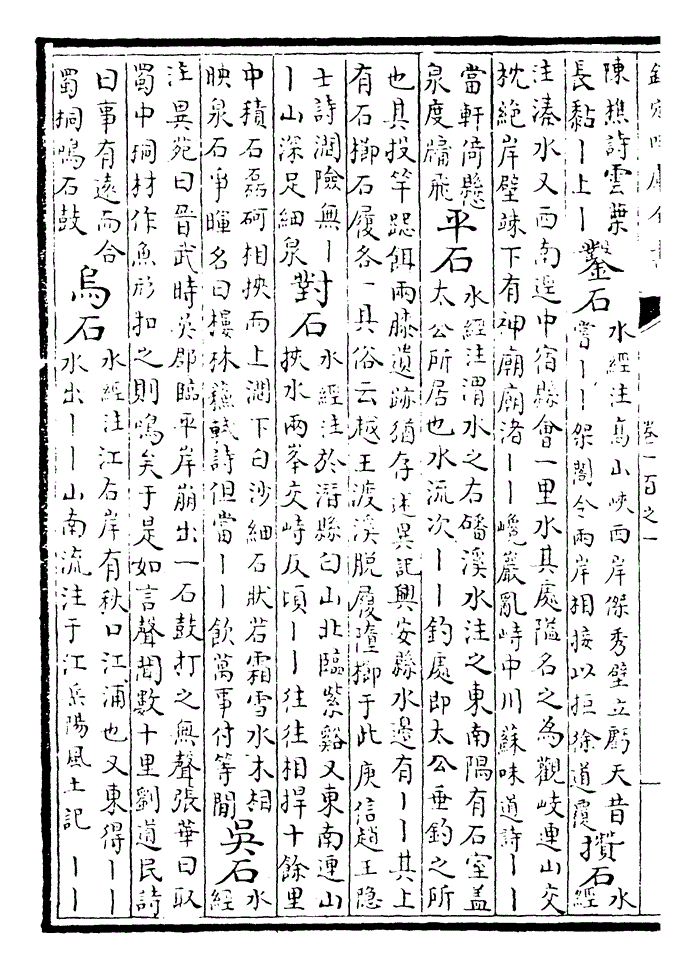 欽定四庫全書
卷一百之一
陳樵詩雲葉
長黏丨上丨
鑿石
水經注高山峽西岸傑秀壁立虧天昔
嘗丨丨架閣令兩岸相接以拒徐道覆
攢石
水
經
注溱水又西南逕中宿縣會一里水其處隘名之為觀岐連山交
枕絶岸壁竦下有神廟廟渚丨丨巉巖亂峙中川蘇味道詩丨丨
當軒倚懸
泉度牖飛
平石
水經注渭水之右磻溪水注之東南隅有石室盖
太公所居也水流次丨丨釣處即太公垂釣之所
也其投竿跽餌兩膝遺跡猶存述異記興安縣水邊有丨丨其上
有石櫛石履各一具俗云越王渡溪脱履墮櫛于此庾信趙王隐
士詩澗險無丨
丨山深足細泉
對石
水經注於潛縣白山北臨紫谿又東南連山
挾水兩峯交峙反項丨丨往往相捍十餘里
中積石磊砢相挾而上澗下白沙細石狀若霜雪水木相
映泉石爭暉名曰樓林蘇軾詩但當丨丨飲萬事付等閒
吳石
水
經
注異苑曰晉武時吳郡臨平岸崩出一石鼓打之無聲張華曰取
蜀中桐材作魚形扣之則鳴矣于是如言聲聞數十里劉道民詩
曰事有遠而合
蜀桐鳴石鼓
烏石
水經注江右岸有秋口江浦也又東得丨丨
水出丨丨山南流注于江岳陽風土記丨丨